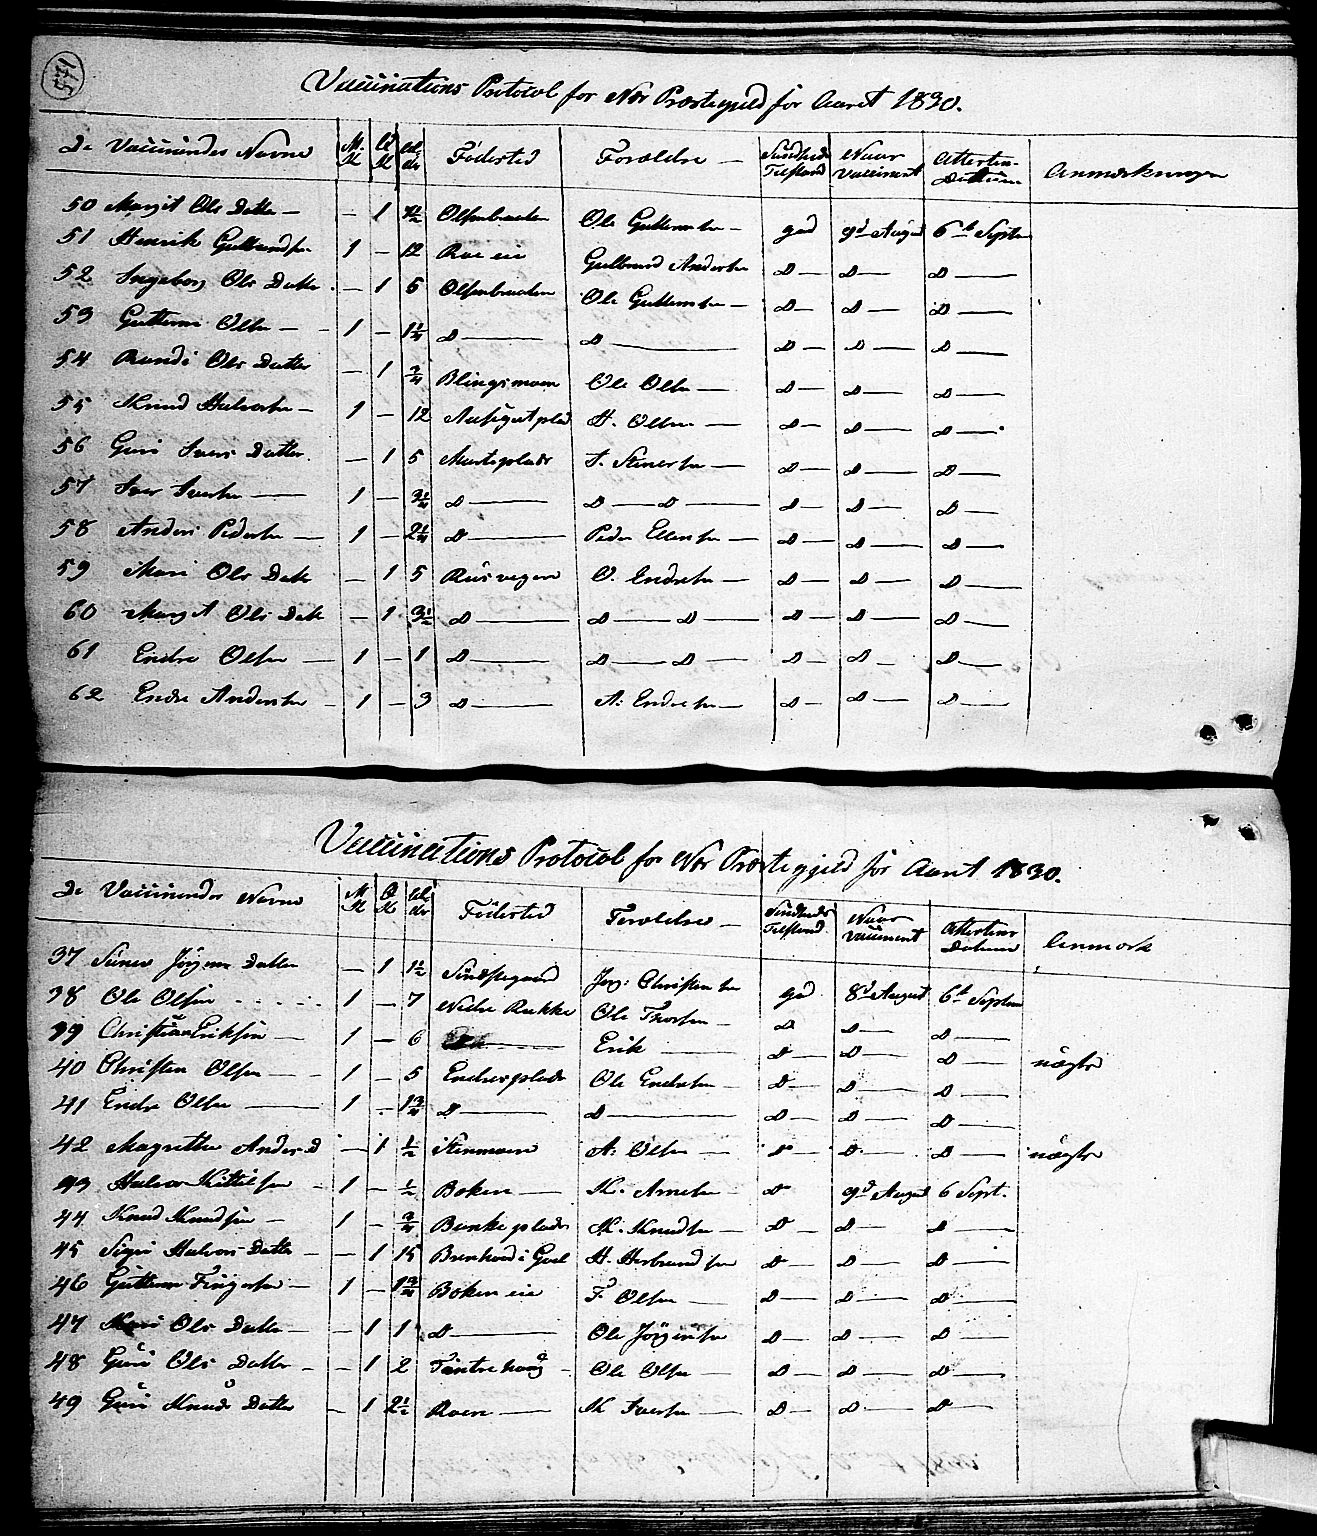 175
Vaccinations Protocol for Næs Præstegjeld for Aaret 1830.
De Vaccinerdes Navne M. K Q K Alder Födested Forældre Sundheds Tilstand Naar Vaccineret Attestens Datum Anmærkninger
50 Margit Ols Datter — 1 Olsenbraaten Ole Guttormsen god 9d August 6te Septbr
51 Henrik Gulbrandsen 1 — 12 Roe eie Gulbrand Andersen D D D
52 Ingeborg Ols Datter — 1 6 Olsenbraaten Ole Guttormsen D D D
53 Guttorm Olsen 1 — 1¼ D D D D D
54 Randi Ols Datter — 1 ¾ Blingsmoen Ole Olsen D D D
55 Knud Halvorsen 1 — 12 H. Olsen D D D
56 Guri Ivers Datter — 1 5 I. Stenersen D D D
57 Iver Iversen 1 — D D D D D D
58 Anders Pedersen 1 — 2¼ D Peder Ellensen D D D
59 Mari Ols Datt — 1 5 Rusvegen O. Endresen D D D
60 Margit Ols Datt — 1 3½ D D D D D D
61 Endre Olsen 1 — 1 D D D D D D
62 Endre Andersen 1 — 3 D A. Endresen D D D
Vaccinations Protocol for Næs Præstegjeld for Aaret 1830.
De Vaccinerdes Navne M K Q K Alder Födested Forældre Sundheds Tilstand Naar Vaccineret Attestens Datum Anmærk
37 Jörgens Datter — 1 1½ Jörg: Christensen god 8d August 6te Septbr
38 Ole Olsen 1 — 7 Nedre Rukke Ole Thorsen D D D
39 Christian Eriksen 1 — 6 Erik D D D nægte
40 Christen Olsen 1 — 5 Endresplads Ole Endresen D D D
41 Endre Olsen 1 — 1¾ D D D D D
42 Magrethe Anders D — 1 ½ Stenmoen A. Olsen D D D nægte
43 Halvor Kittilsen 1 — ½ Boken K. Arnesen D 9d August 6 Sept.
44 Knud Knudsen 1 — ¾ Bankeplads K. Knudsen D D D
45 Sigri Halvors Datter — 1 15 Brenhovd i Goel H. Herbrandsen D D D
46 Guttorm Fingersen 1 — 1¾ Boken eie F. Olsen D D D
47 Kari Ols Datter — 1 1 D Ole Jörgensen D D D
48 Guri Ols Datter — 1 2 Ole Olsen D D D
49 Guri Knuds Datter — 1 2½ Roen K Iversen D D D